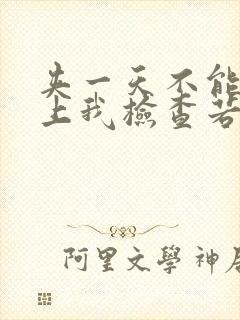 失一天不能
上我檢查若
阿里文學神居